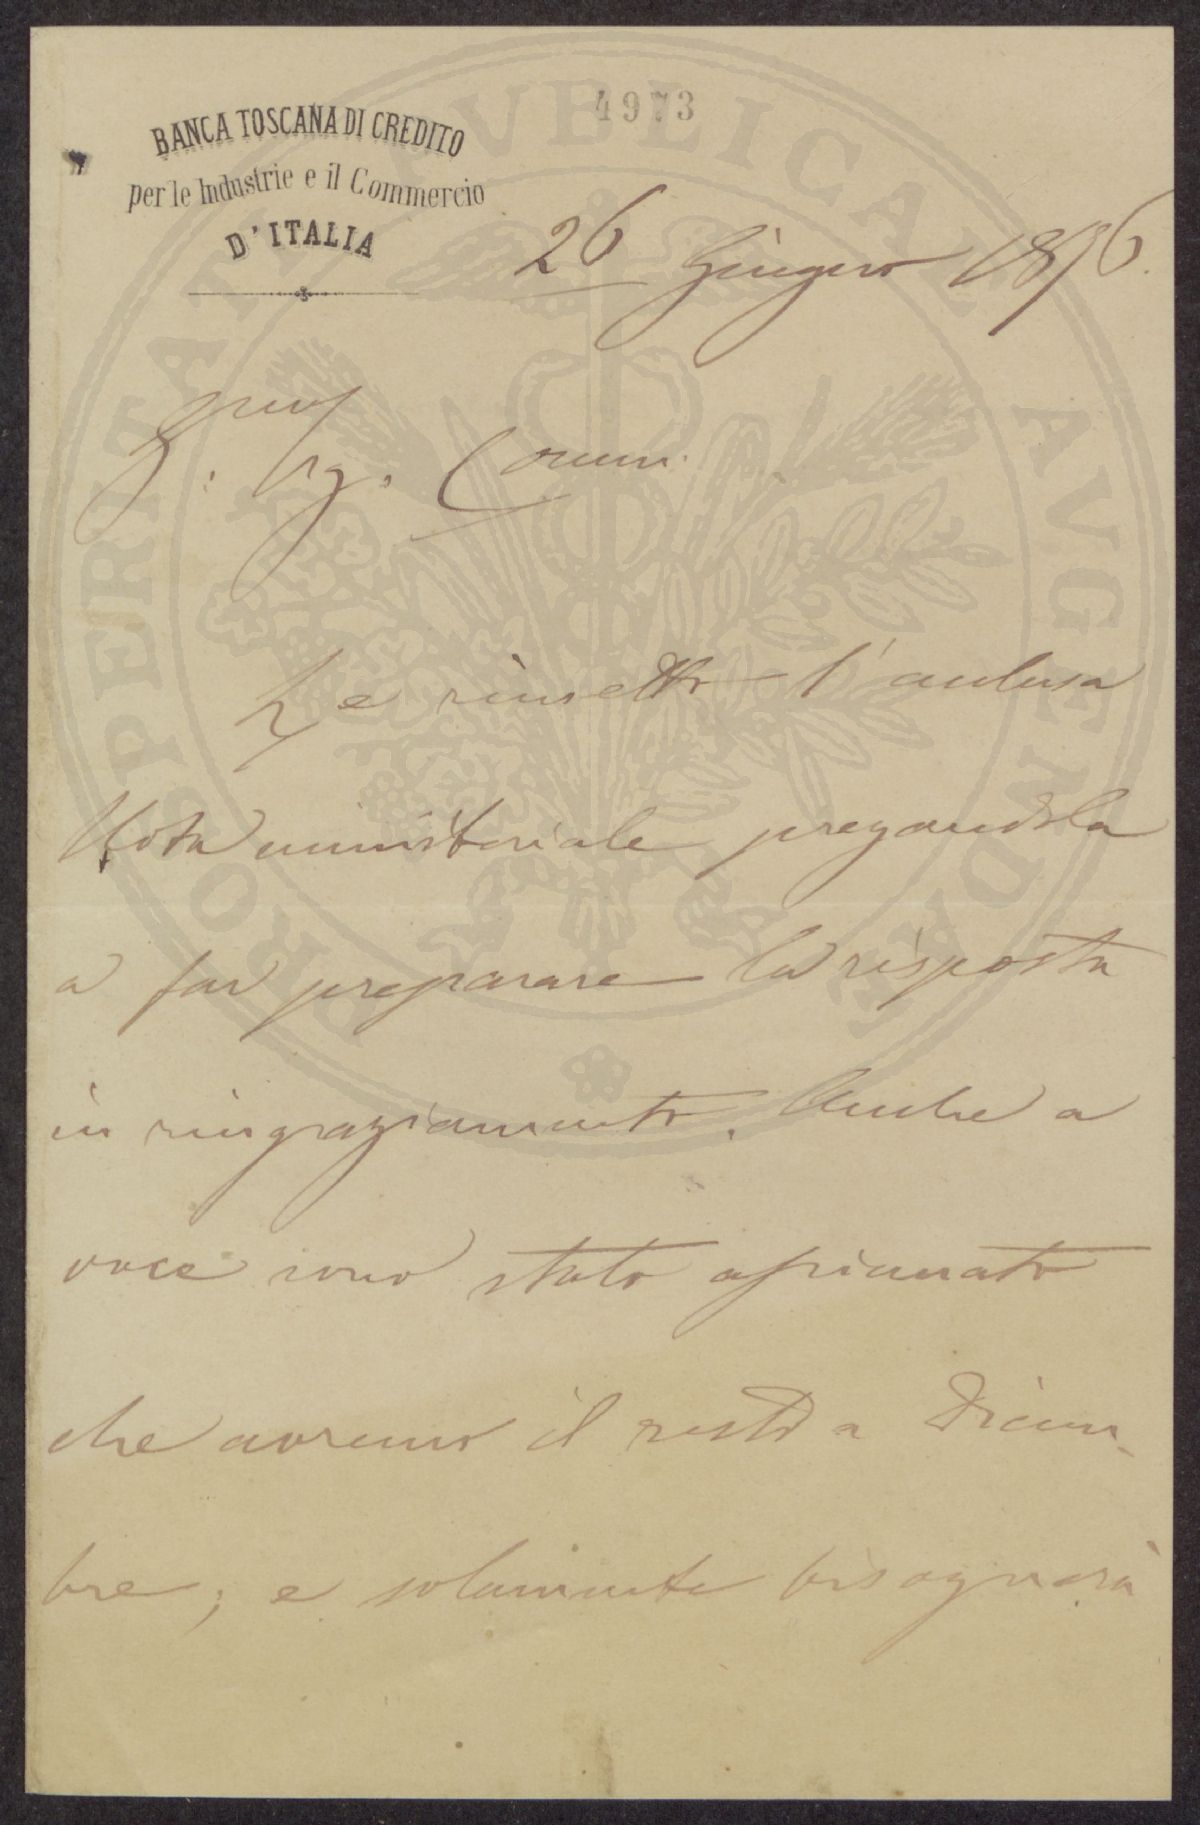 4973
BANCA TOSCANA DI CREDITO
per le Industrie e il Commercio
D'ITALIA
26 Giugno 1876.
S. Sig. Comm.
Le rimetto l'acclusa
Nota ministeriale pregandola
a far preparare la risposta
in ringraziamento. Anche a
voce sono stato
che avremo il resto a Dicem-
bre; e solamente bisognerà
PROSPERITATI PVBLICAE AVGENDAE